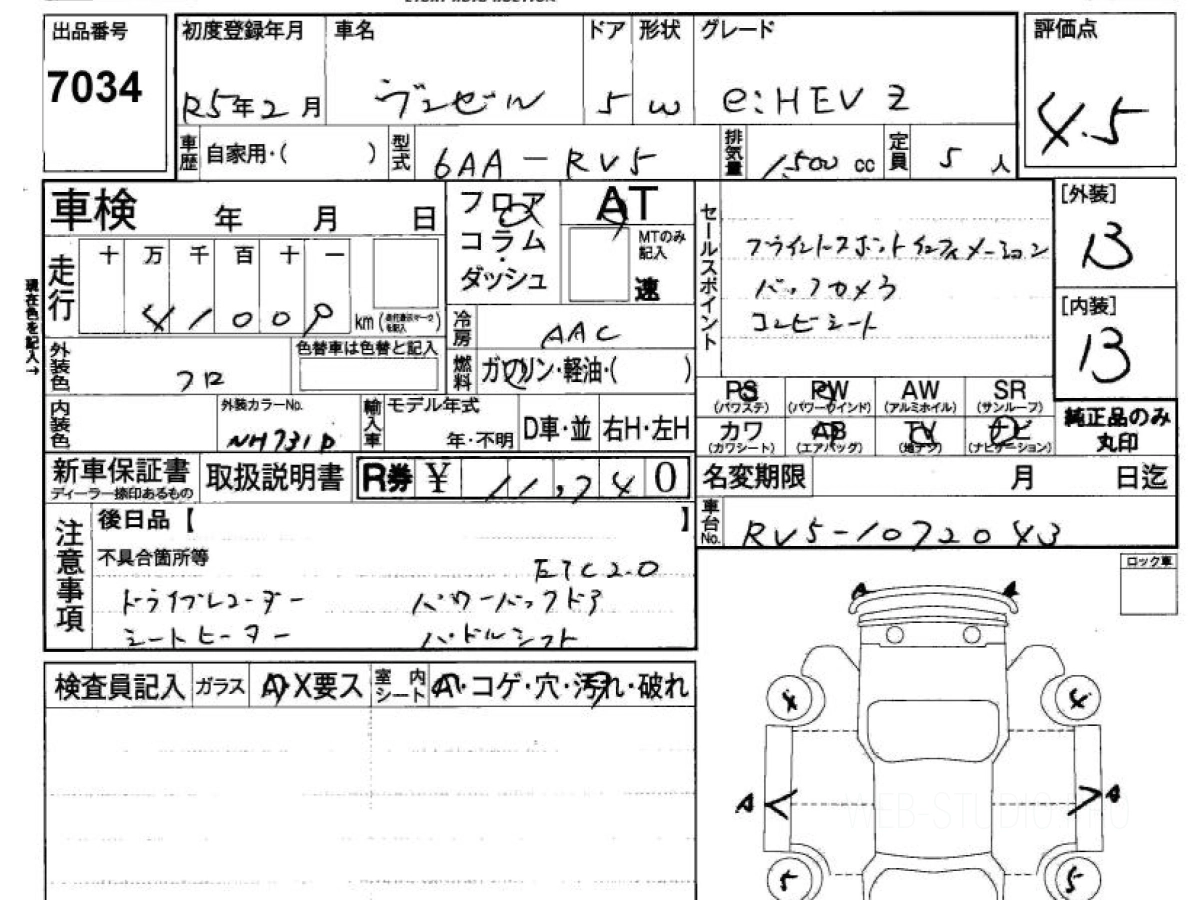 出品番号 初度登録年月 車名 ドア 形状 グレード 評価点
7034 R5年2月 ヴェゼル 5 W e:HEV Z 4.5
車歴 自家用・( ) 型式 6AA-RV5 排気量 1,500 cc 定員 5 人
車検 年 月 日 フロア AT セールスポイント [外装]
コラム MTのみ記入 ブラインドスポットインフォメーション B
走行 十 万 千 百 十 一 ダッシュ 速 バックカメラ
現在色を記入→ 41009 km 冷房 AAC コンビシート [内装]
外装色 クロ 色替車は色替と記入 燃料 ガソリン・軽油・( ) B
PS PW AW SR
(パワステ) (パワーウインド) (アルミホイル) (サンルーフ)
内装色 外装カラーNo. NH731P 輸入車 モデル年式 年・不明 D車・並 右H・左H
カワ AB TV ナビ 純正品のみ丸印
(カワシート) (エアバッグ) (地デジ) (ナビゲーション)
新車保証書 取扱説明書 R券 ¥ 11,740 名変期限 月 日迄
ディーラー捺印あるもの
注意事項 後日品【 】 車台No. RV5-1072043
不具合箇所等 ETC2.0 ロック車
ドライブレコーダー パワーバックドア
シートヒーター パドルシフト
A A
検査員記入 ガラス A・X要ス 室内シート A・コゲ・穴・汚れ・破れ
4 4
A A
WEB-STUDIO.PRO
5 5